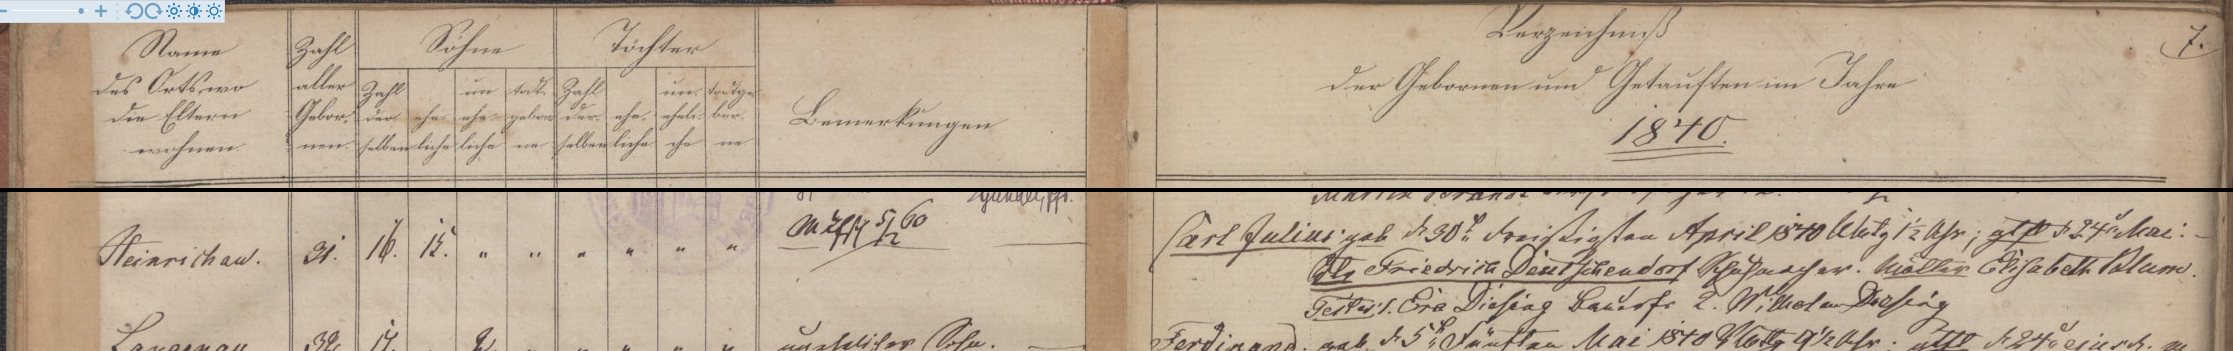 Name
des Orts, wo
die Eltern
wohnen.
Zahl
aller
Gebor-
nen.
Söhne
Zahl
der-
selben
ehe-
liche
un
ehe-
liche
todt-
gebor-
ne
Töchter
Zahl
der-
selben
ehe-
liche
un-
eheli-
che
todtge-
bor-
ne
Bemerkungen
Verzeichniß
der Gebornen und Getauften im Jahre
1840.
7.
Heinrichau. 31. 16. 15. " " " " " "
5/12 60
Carl Julius geb. d 30t dreißigsten April 1840 Mittg 1½ Uhr; get. d 24t Mai.
Friedrich Deutschendorf Schuhmacher. Mutter Elisabeth Blum.
Testes: 1. Eva Diesing 2. Wilhelm Diesing
Langenau 32. 17. 2. " " " " " unehlicher Sohn.
Ferdinand. geb. d 5t fünften Mai 1840 9½ Uhr. d 24t